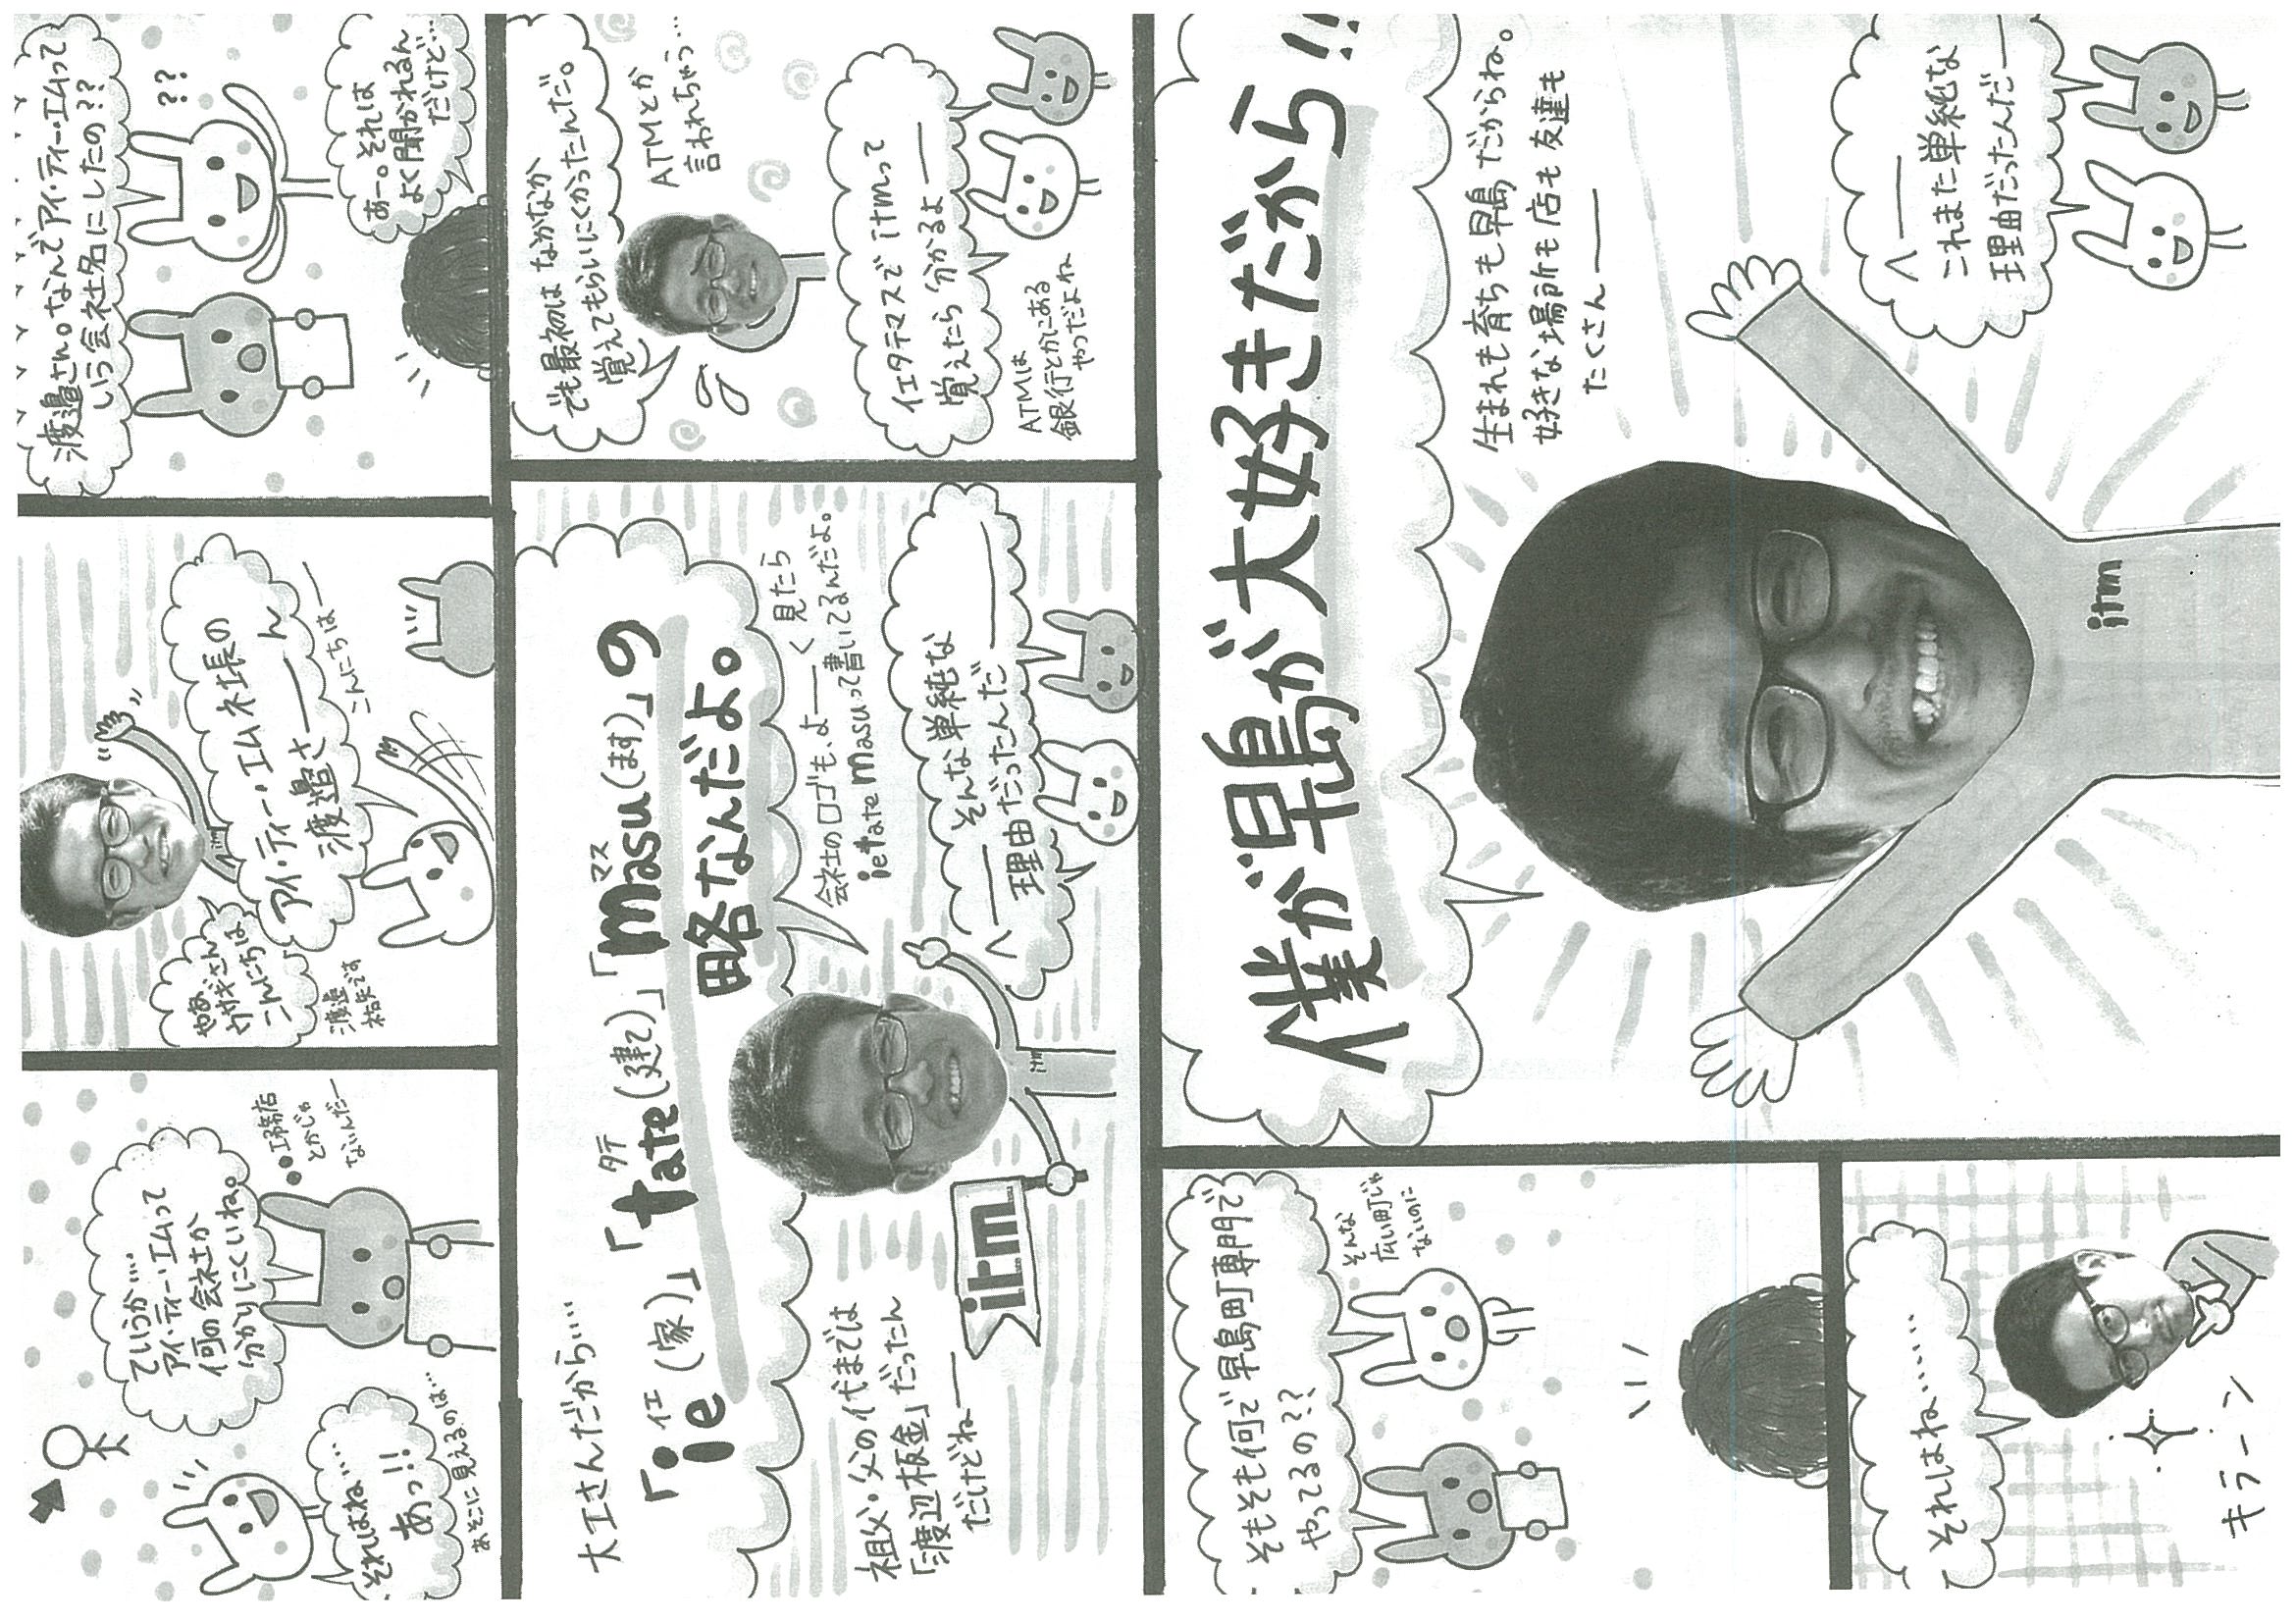 ていうか…
アイ・ティー・エムって
何の会社か
分かりにくいね。
●●工務店
とかじゃ
ないんだー
それはね…
あっ!!
あそこに見えるのは…
アイ・ティー・エム社長の
渡邉さーーん
こんにちはー
やああ
ウサギさん
こんにちは
渡邉
です
渡邉さん。なんでアイ・ティー・エムって
いう会社名にしたの??
??
あー。それは
よく聞かれるん
だけど…
大工さんだから…
イエ
「ie(家)」
タテ
「tate(建て)」
マス
「masu(ます)」の
略なんだよ。
会社のロゴも、よーーく見たら
ietatemasuって書いてるんだよ。
祖父・父の代までは
「渡辺板金」だったん
だけどねー
itm
itm
へーー そんな単純な
理由だったんだーー
でも最初は なかなか
覚えてもらいにくかったんだ。
ATMとか
言われちゃう…
イエタテマスで itmって
覚えたら 分かるよーー
ATMは
銀行とかにある
やつだよね
そもそも何で早島町専門で
やってるの??
そんな
広い町じゃ
ないのに
それはね……
キラーン
僕が早島が大好きだから!!
生まれも育ちも早島だからね。
好きな場所も店も友達も
たくさんーー
itm
へーー
これまた単純な
理由だったんだー